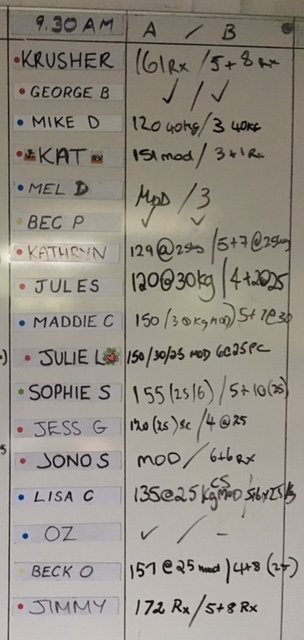 9.30 AM A / B
KRUSHER 161 Rx / 5+8 Rx
GEORGE B ✓ / ✓
MIKE D 120 40kg / 3 40kg
KAT 151 mod / 3+1 Rx
MEL D MOD / 3
BEC P ✓ ✓
KATHRYN 129@25kg / 5+7@25kg
JULES 120@30kg / 4+2@25
MADDIE C 150 / 5+7@30
JULIE L 150/30/25 MOD 6@25
SOPHIE S 155 (25/6) / 5+10 (25)
JESS G 120 (25) sc / 4@25
JONO S MOD / 6+6 Rx
LISA C 135@25kg MOD
OZ ✓ / -
BECK O 157@25 mod / 4+8 (25)
JIMMY 172 Rx / 5+8 Rx